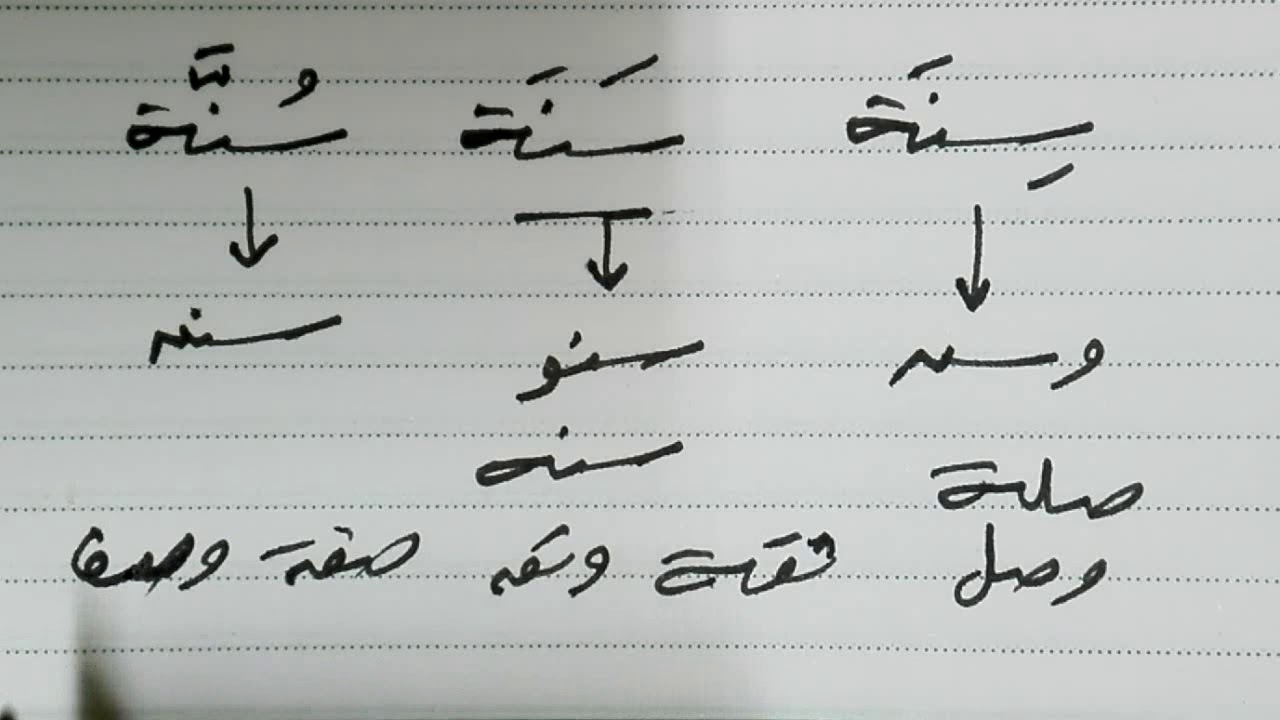 سِنَة سَنَة سُنَّة
وسن سنو سنن
سنه
صلة
وصل ثقة وثق صفة وصف